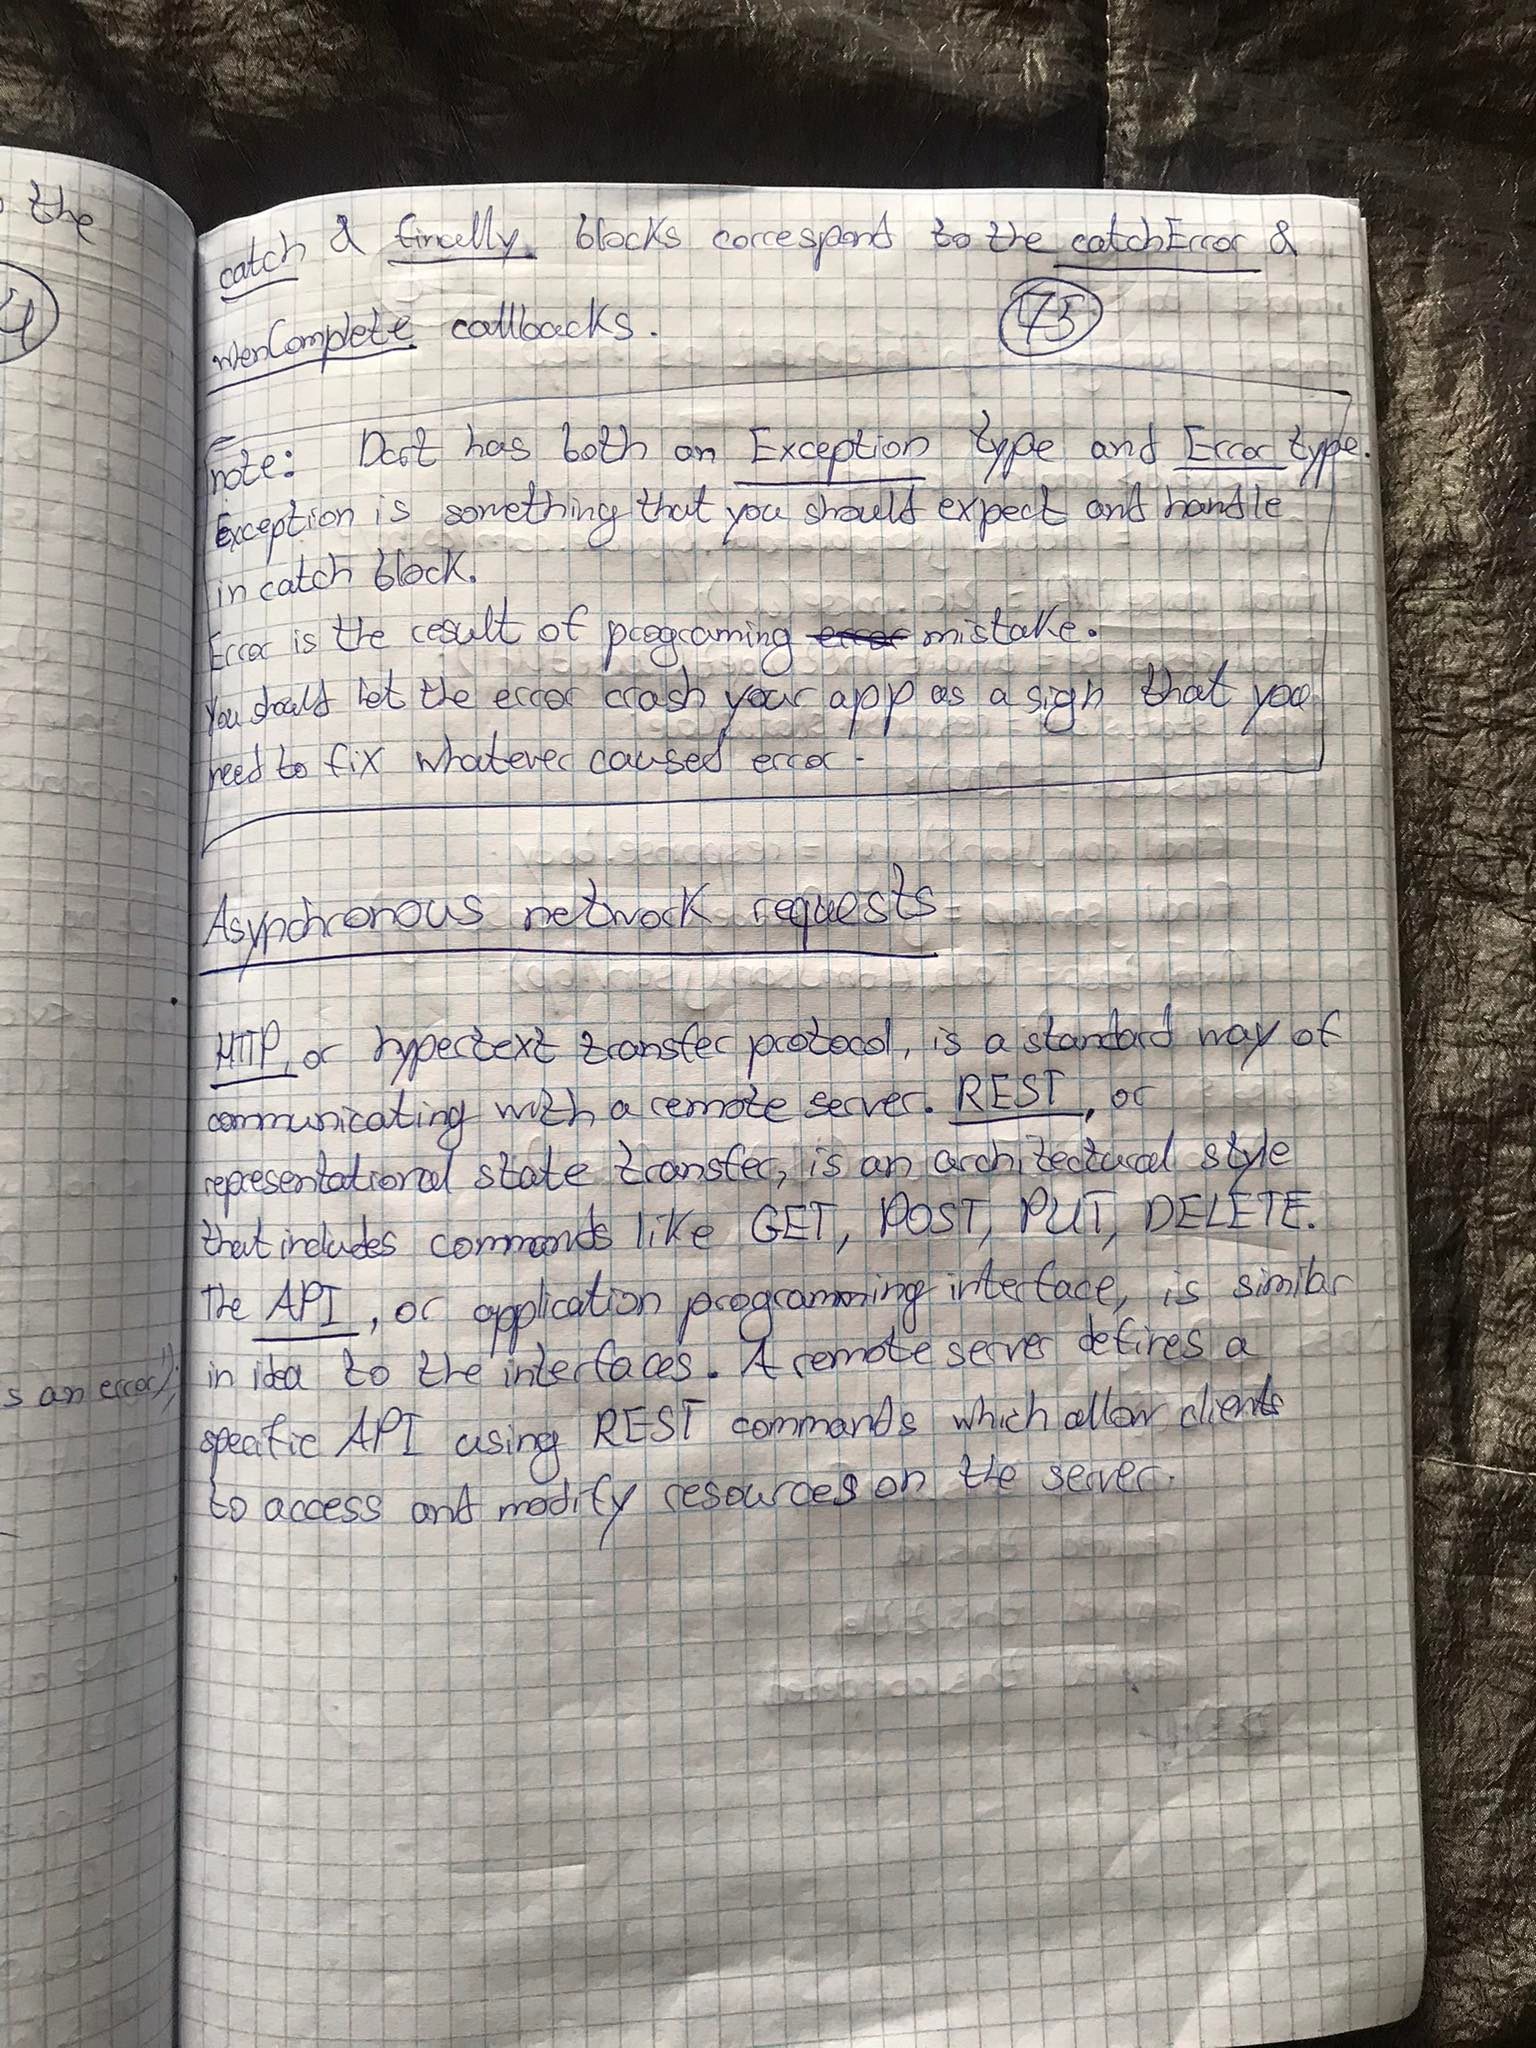 the
4
s an error");
catch & finally blocks correspond to the catchError &
whenComplete callbacks.
75
note: Dart has both an Exception type and Error type.
Exception is something that you should expect and handle
in catch block.
Error is the result of programing error mistake.
You should let the error crash your app as a sign that you
need to fix whatever caused error.
Asynchronous network requests
HTTP, or hypertext transfer protocol, is a standard way of
communicating with a remote server. REST, or
representational state transfer, is an architectural style
that includes commands like GET, POST, PUT, DELETE.
The API, or application programming interface, is similar
in idea to the interfaces. A remote server defines a
specific API using REST commands which allow clients
to access and modify resources on the server.